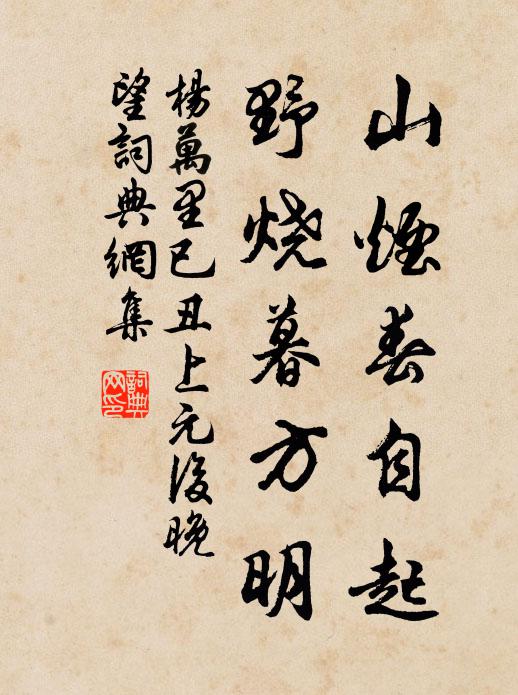 山煙春自起
野烧暮方明
楊萬里己丑上元後晚
望詞典網集
詞典
网印